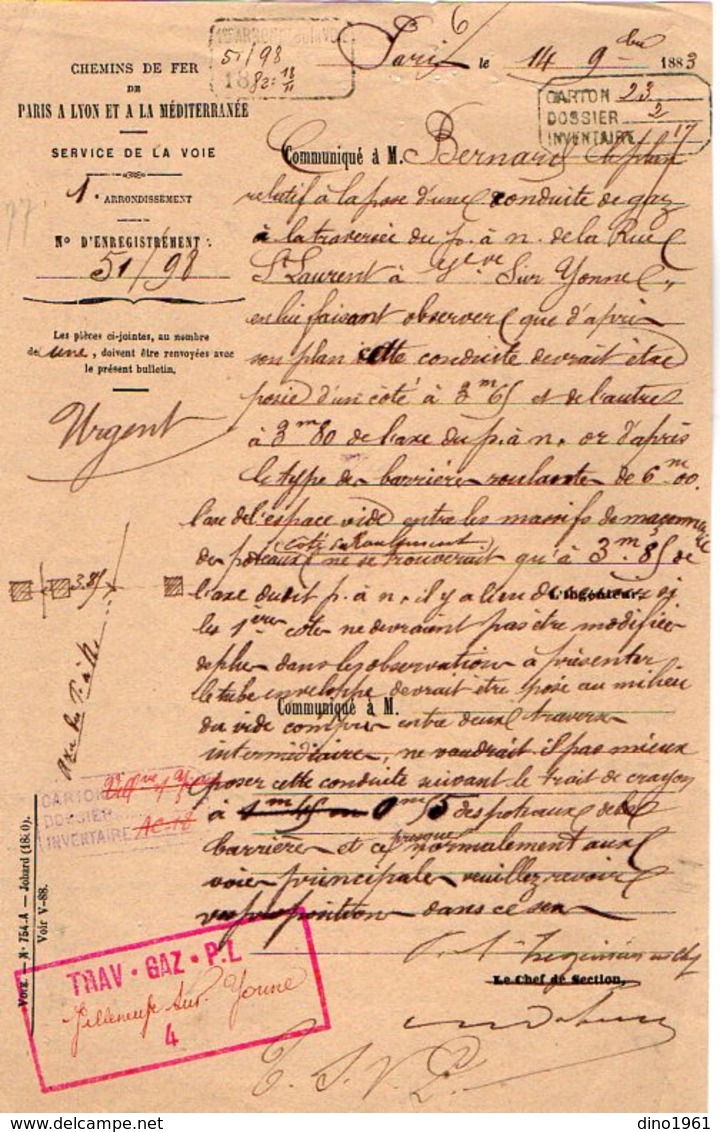 6
1er ARRONDT DE LA VOIE
51/98
1882: 18/11
Paris le 14 9bre 1883
CARTON 23
DOSSIER 2
INVENTAIRE 17
CHEMINS DE FER
DE
PARIS A LYON ET A LA MÉDITERRANÉE
SERVICE DE LA VOIE
1er ARRONDISSEMENT
N° D'ENREGISTREMENT :
51/98
Les pièces ci-jointes, au nombre
de une, doivent être renvoyées avec
le présent bulletin.
Urgent
77
Communiqué à M. Bernard le plan
relatif à la pose d'une conduite de gaz
à la traversée du p. à n. de la Rue
St Laurent à Vve Sur Yonne,
en lui faisant observer que d'après
son plan cette conduite devrait être
posée d'un côté à 3m65 et de l'autre
à 3m80 de l'axe du p. à n, or d'après
le type de barrière roulante de 6m00
l'axe de l'espace vide entre les massifs de maçonnerie
des poteaux (côté du Roulement) ne se trouverait qu'à 3m.85 de
l'axe dudit p. à n, il y a lieu de si
L'Ingénieur,
les 1ères cotes ne devraient pas être modifiées
de plus dans les observations à présenter
le tube enveloppe devrait être posé au milieu
Communiqué à M.
du vide compris entre deux travers
intermédiaires, ne vaudrait il pas mieux
poser cette conduite suivant le trait de crayon
à 1m45 0m55 des poteaux de la
barrière et ce presque normalement aux
voies principales veuillez revoir
vos proposition dans ce sens
P. l'Ingénieur en Chef
Le Chef de Section,
3.85
Axe du P. à N.
CARTON Villve s/ Yonne
DOSSIER
INVENTAIRE AC-18
Voie. — N° 754-A — Jobard (1880).
Voir V-88.
TRAV · GAZ · P.L
Villeneuve sur Yonne
4
T. S. V. P.
dino1961